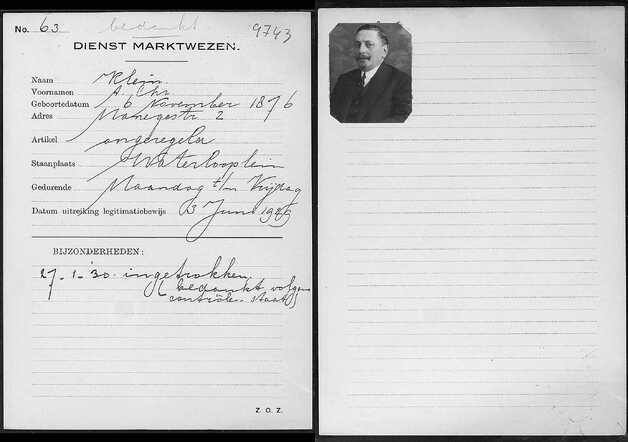 No. 63 bedankt 9743
DIENST MARKTWEZEN.
Naam Klein
Voornamen A. Chr.
Geboortedatum 6 November 1876
Adres Manegestr 2
Artikel ongeregeld
Staanplaats Waterlooplein
Gedurende Maandag t/m Vrijdag
Datum uitreiking legitimatiebewijs 3 Juni 1929
BIJZONDERHEDEN:
27-1-'30 ingetrokken
( bedankt volgens
contrôle-staat)
Z. O. Z.